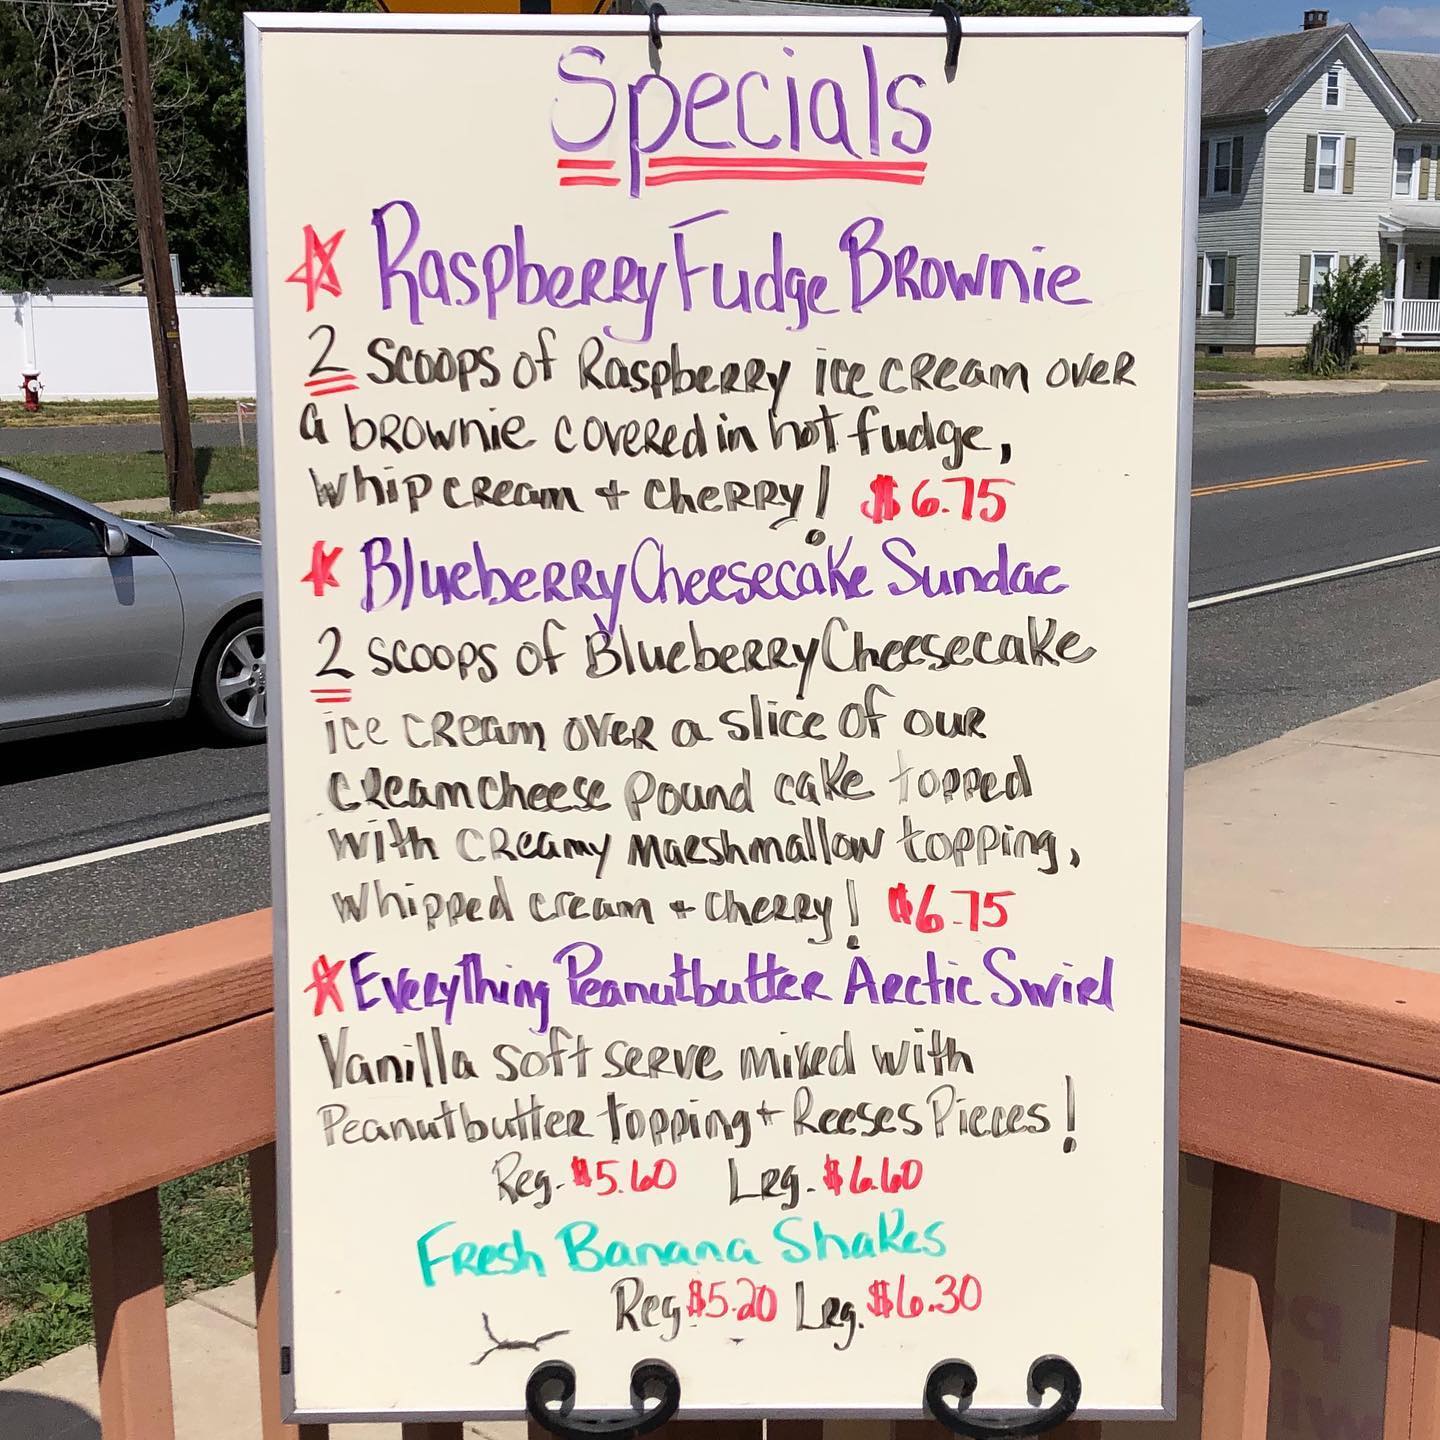 Specials
Raspberry Fudge Brownie
2 scoops of Raspberry ice cream over
a brownie covered in hot fudge,
whip cream + cherry! $6.75
Blueberry Cheesecake Sundae
2 scoops of Blueberry Cheesecake
ice cream over a slice of our
creamcheese pound cake topped
with creamy marshmallow topping,
whipped cream + cherry! $6.75
Everything Peanutbutter Arctic Swirl
Vanilla soft serve mixed with
Peanutbutter topping + Reeses Pieces!
Reg. $5.60 Lrg. $6.60
Fresh Banana Shakes
Reg $5.20 Lrg. $6.30